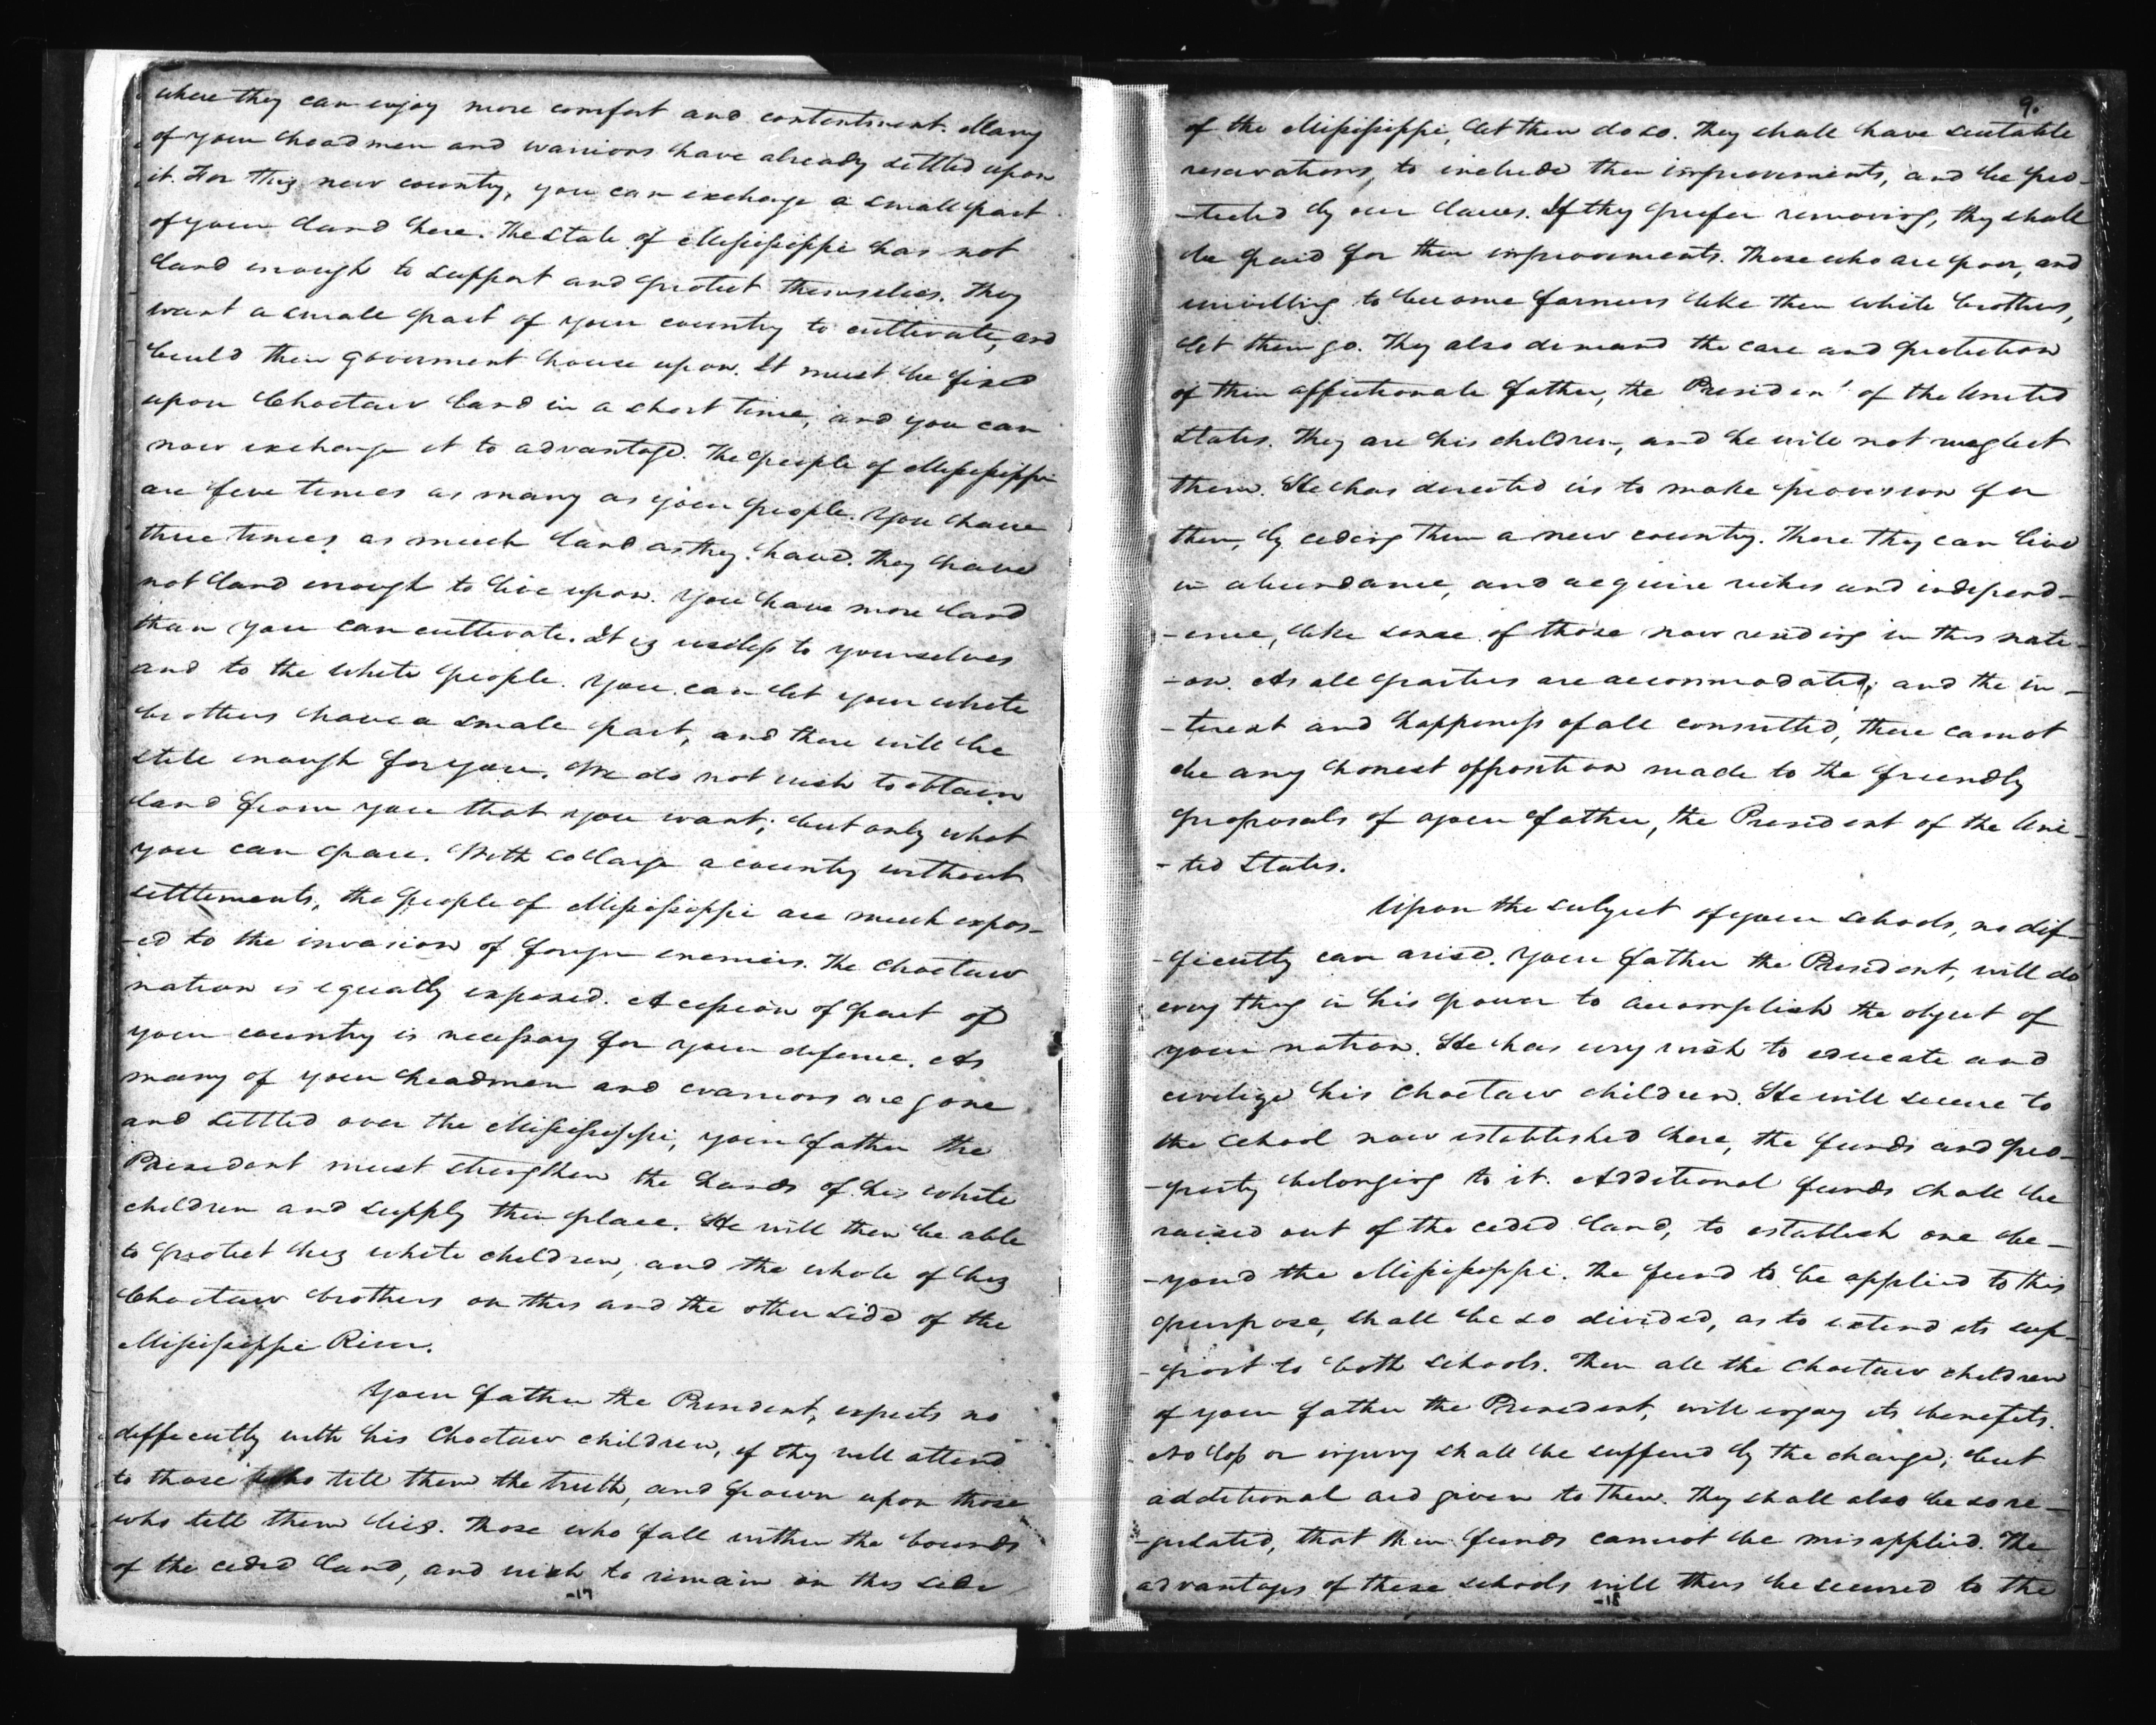 where they can enjoy more comfort and contentment. Many
of your headmen and warriors have already settled upon
it. For this new country, you can exchange a small part
of your land here. The State of Missisippi has not
land enough to support and protect themselves. They
want a small part of your country to cultivate, and
build their goverment house upon. It must be fixed
upon Choctaw land in a short time, and you can
now exchange it to advantage. The people of Missisippi
are five times as many as your people. You have
three times as much land as they have. They have
not land enough to live upon. You have more land
than you can cultivate. It is useless to yourselves
and to the white people. You can let your white
brothers have a small part, and there will be
still enough for you. We do not wish to obtain
land from you that you want; but only what
you can spare. With so large a country without
settlements, the people of Missisippi are much expos-
-ed to the invasion of foreign enemies. The Choctaw
nation is equally exposed. A cession of part of
your country is necessary for your defence. As
many of your headmen and warriors are gone
and settled over the Missisippi, your father the
President must strengthen the hands of his white
children and supply their place. He will then be able
to protect his white children, and the whole of his
Choctaw brothers on this and the other side of the
Missisippi River.
Your father the President, expects no
difficulty with his Choctaw children, if they will attend
to those who tell them the truth, and frown upon those
who tell them lies. Those who fall within the bounds
of the ceded land, and wish to remain on this side
-17
9.
of the Missisippi, let them do so. They shall have suitable
reservations, to include their improvements, and be pro-
-tected by our laws. If they prefer removing, they shall
be paid for their improvements. Those who are poor, and
unwilling to become farmers like their white brothers,
let them go. They also demand the care and protection
of their affectionate father, the President of the United
States. They are his children, and he will not neglect
them. He has directed us to make provision for
them, by ceding them a new country. There they can live
in abundance, and acquire riches and independ-
-ence, like some of those now residing in this nati-
-on. As all parties are accommodated; and the in-
-terest and happiness of all consulted, there cannot
be any honest opposition made to the friendly
proposals of your father, the President of the Uni-
-ted States.
Upon the subject of your schools, no dif-
-ficulty can arise. Your father the President, will do
every thing in his power to accomplish the object of
your nation. He has every wish to educate and
civilize his Choctaw children. He will secure to
the school now established here, the funds and pro-
-perty belonging to it. Additional funds shall be
raised out of the ceded land, to establish one be-
-yond the Missisippi. The fund to be applied to this
purpose, shall be so divided, as to extend its sup-
-port to both schools. Then all the Choctaw children
of your father the President, will enjoy its benefits.
No loss or injury shall be suffered by the change; but
additional aid given to them. They shall also be so re-
-gulated, that their funds cannot be misapplied. The
advantages of these schools will thus be secured to the
-18